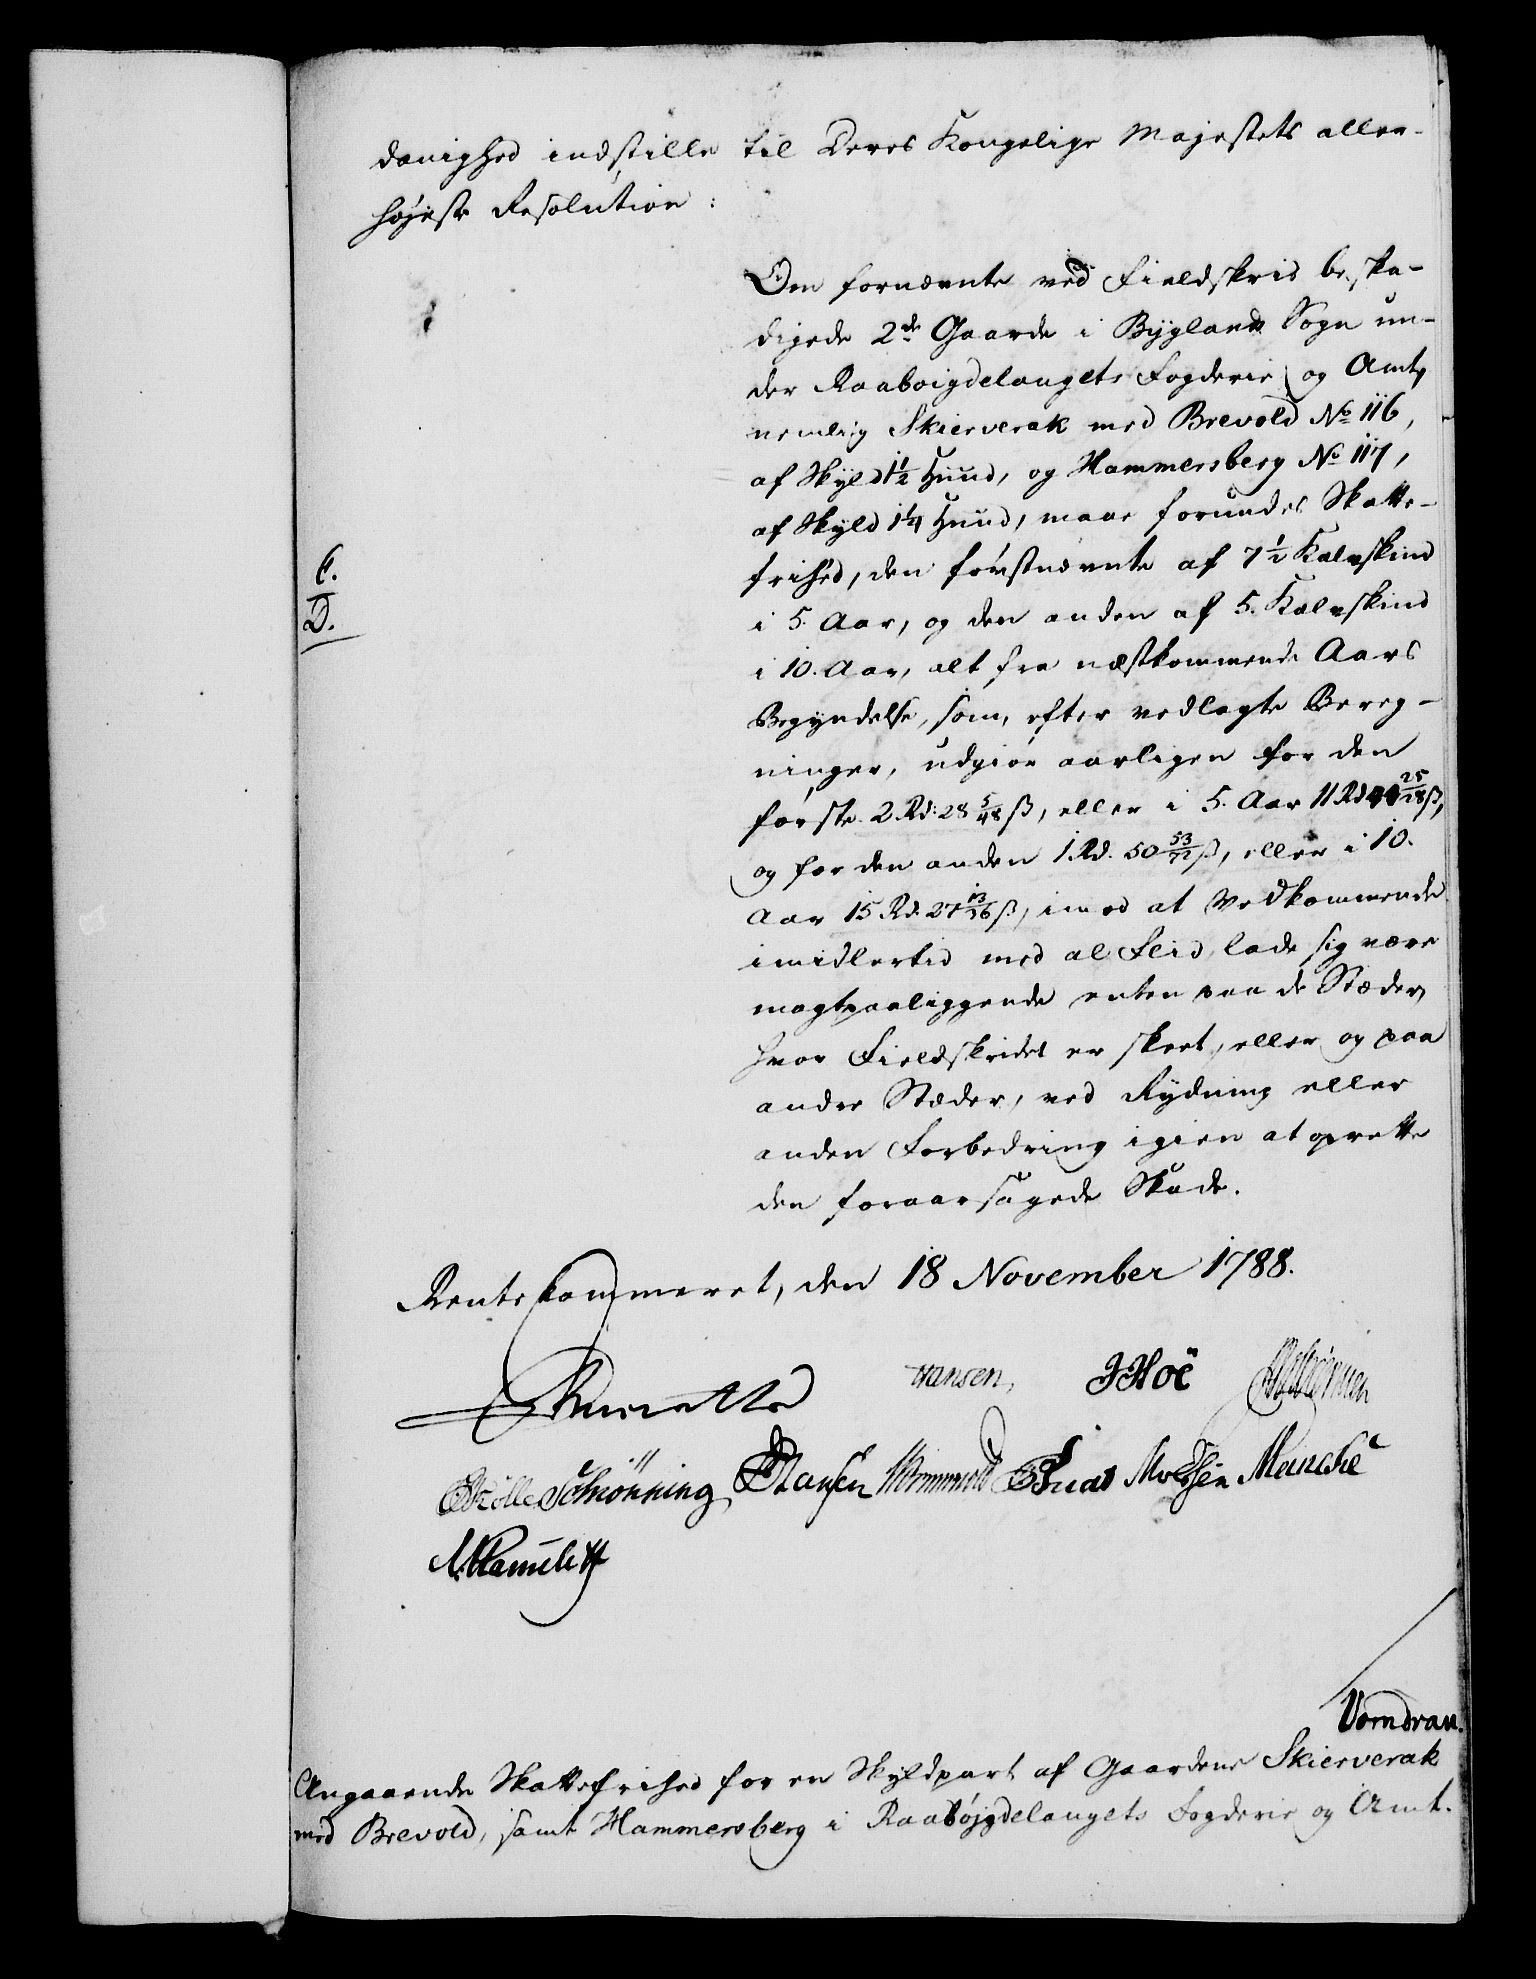 danighed indstille til Deres Kongelige Majestets aller-
høyeste Resolution:
Om fornævnte ved Fieldskrid beska-
digede 2de Gaarde i Bygland Sogn un-
der Raaboigdelaugets Fogderie og Amt,
nemlig Skierverak med Brevold No 116,
af Skyld 1½ Huud, og Hammersberg No 117,
af Skyld 1¼ Huud, maae forundes Skatte-
frihed, den førstnævnte af 7½ Kalvskind
C. i 5 Aar, og den anden af 5. Kalvskind
D. i 10. Aar, alt fra næstkommende Aars
Begyndelse, som, efter vedlagte Bereg-
ninger, udgiør aarligen for den
første 2 Rd: 28 5/48 ß, eller i 5. Aar 11 Rd 44 25/48 ß,
og for den anden 1 Rd. 50 53/72 ß, eller i 10.
Aar 15 Rd. 27 13/36 ß, imod at Vedkommende
imidlertid med al Fliid lade sig være
magtpaaliggende enten paa de Stæder,
hvor Fieldskridet er skeet, eller og paa
andre Stæder, ved Rydning eller
anden Forbedring igien at oprette
den foraarsagede Skade.
Rentekammeret, den 18 November 1788.
Hansen, JHoë
Schiønning Hansen Wormwold Moessin Manche
Vomdran.
Angaaende Skattefrihed for en Skyldpart af Gaardene Skierverak
med Brevold, samt Hammersberg i Raabøjgdelaugets Fogderie og Amt.